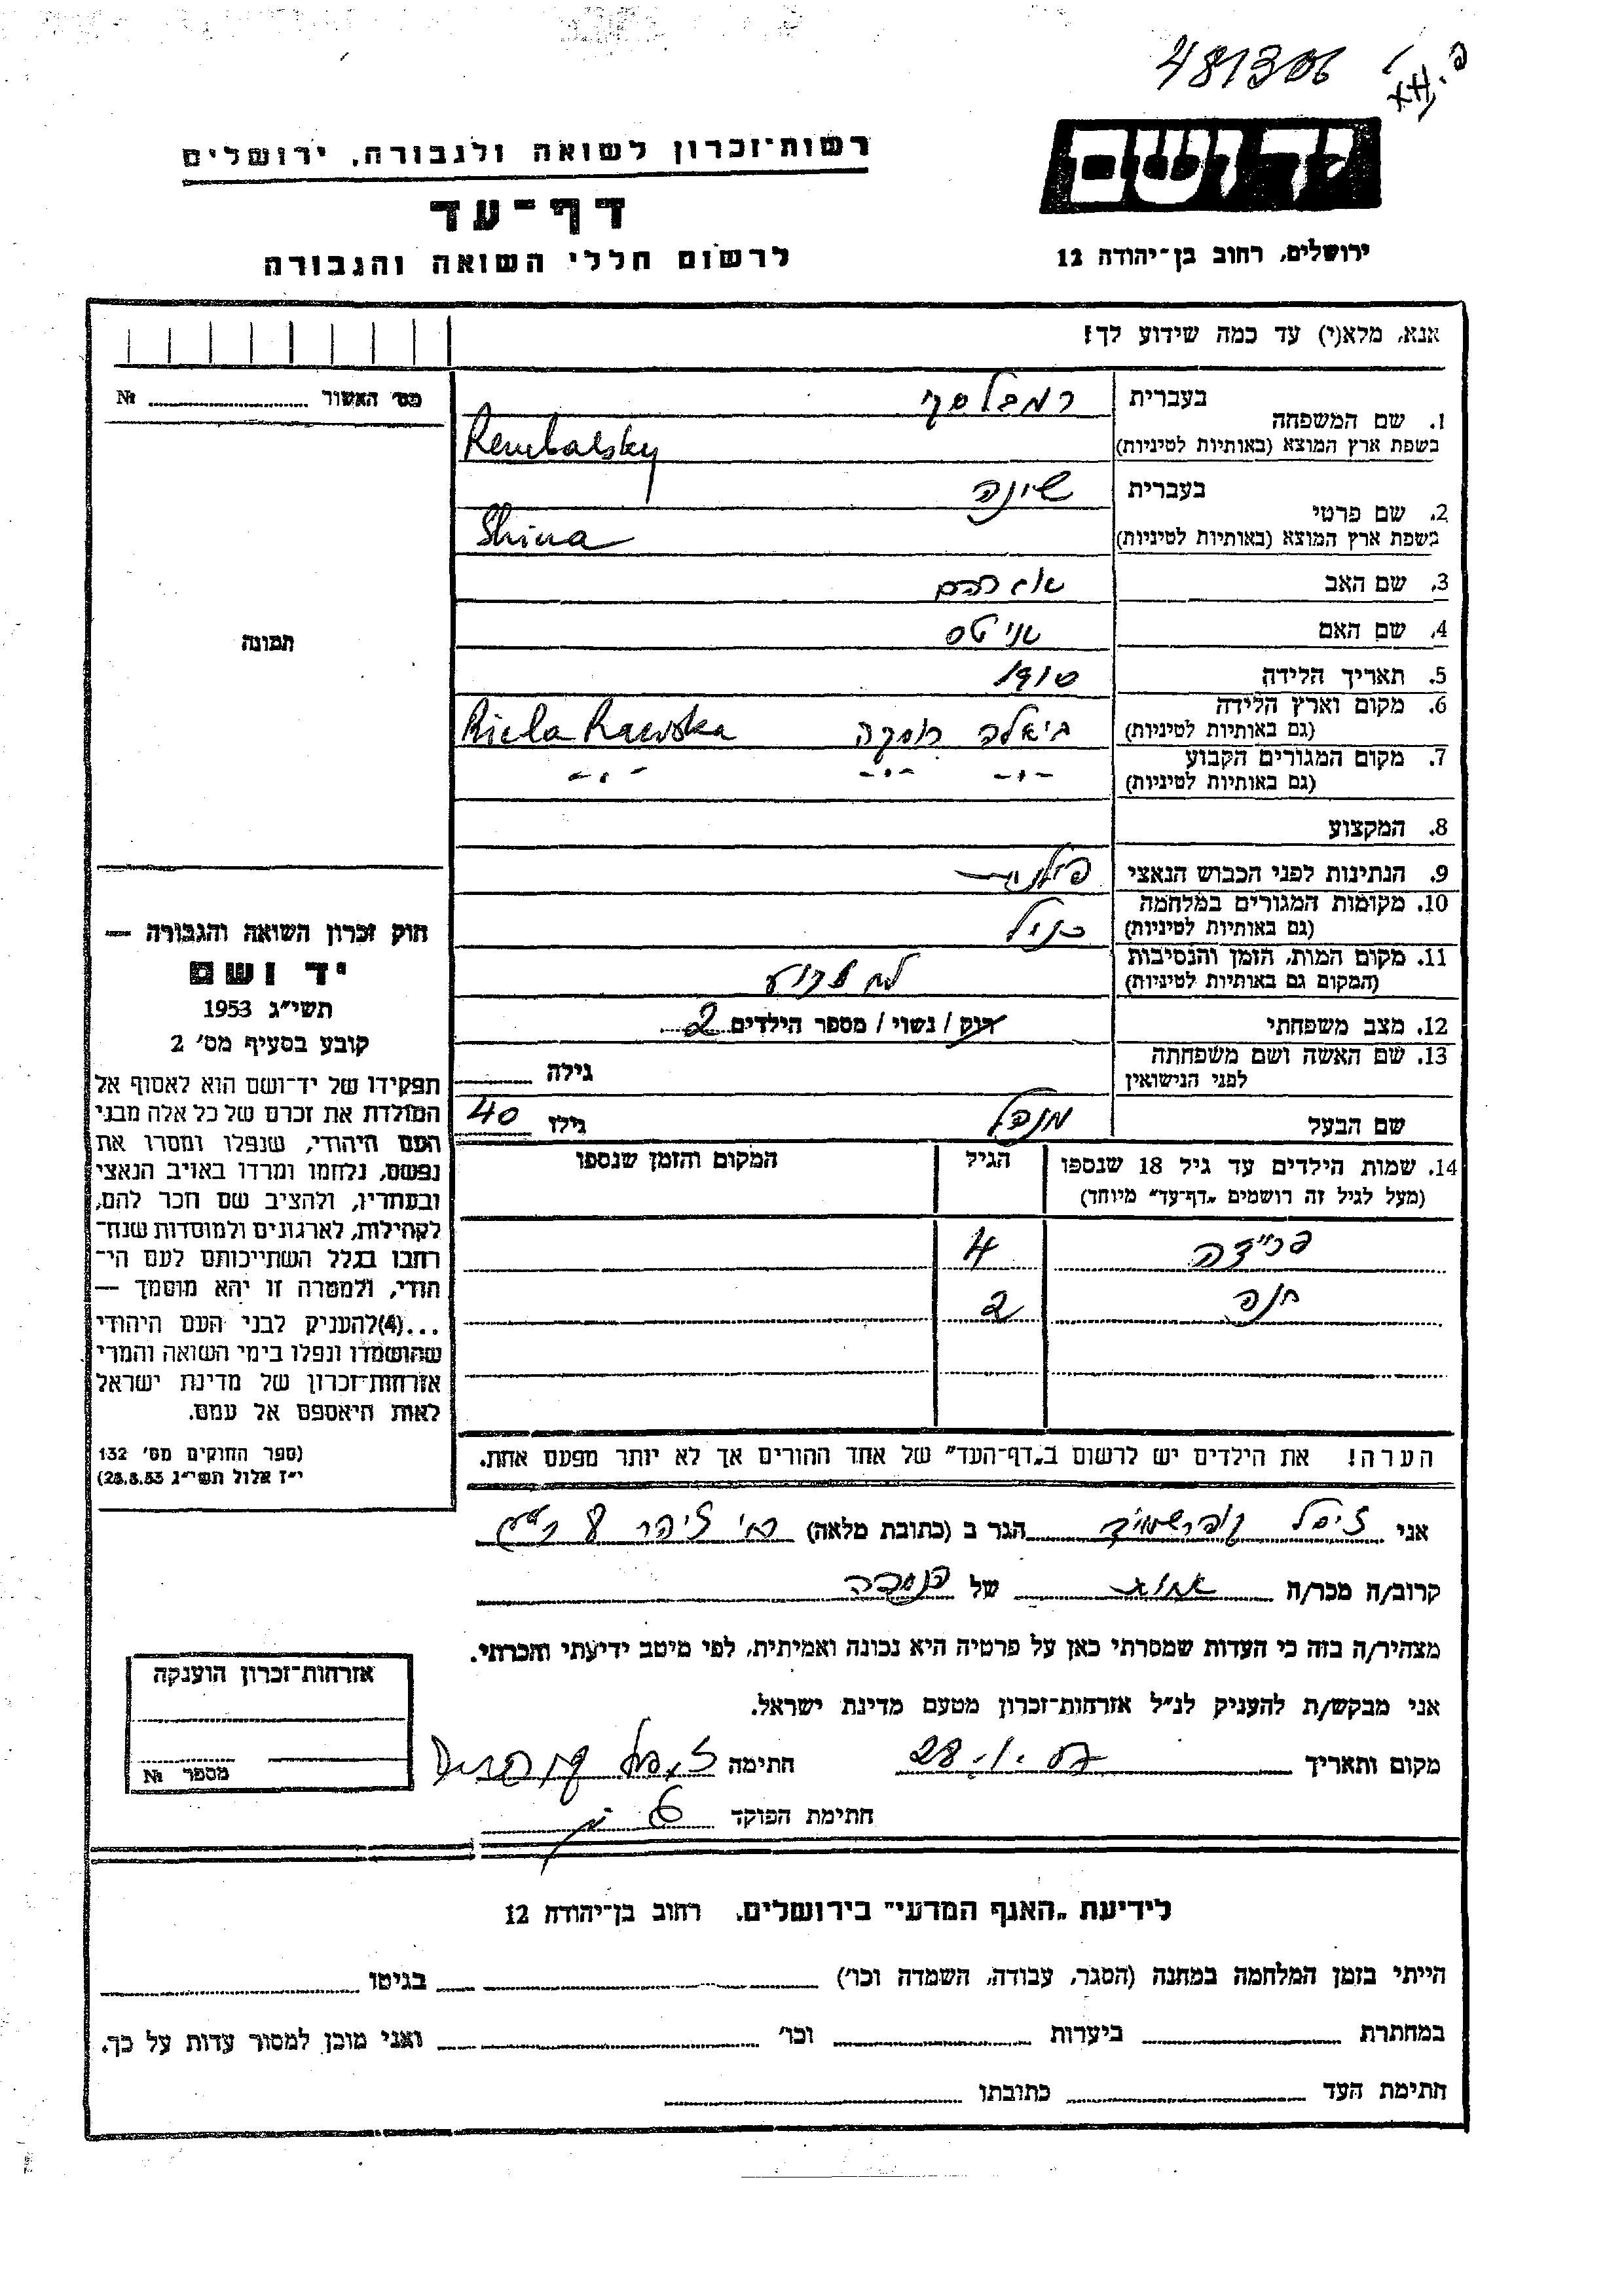 481306
יד ושם
רשות־זכרון לשואה ולגבורה, ירושלים
דף־עד
לרשום חללי השואה והגבורה
ירושלים, רחוב בן־יהודה 12
אנא, מלא(י) עד כמה שידוע לך!
מס׳ האשור № 
1. שם המשפחה
בעברית רמבלסקי
בשפת ארץ המוצא (באותיות לטיניות) Rembalsky
2. שם פרטי
בעברית שינה
בשפת ארץ המוצא (באותיות לטיניות) Shina
3. שם האב אברהם
4. שם האם
5. תאריך הלידה 1910
6. מקום וארץ הלידה
(גם באותיות לטיניות) ביאלה רבסקה Biela Rawska
7. מקום המגורים הקבוע
(גם באותיות לטיניות) -"- -"- -"-
8. המקצוע
9. הנתינות לפני הכבוש הנאצי פולנית
10. מקומות המגורים במלחמה
(גם באותיות לטיניות) כנ"ל
11. מקום המות, הזמן והנסיבות
(המקום גם באותיות לטיניות) לא ידוע
12. מצב משפחתי רוק / נשוי / מספר הילדים 2
13. שם האשה ושם משפחתה
לפני הנישואין גילה
שם הבעל מנדל גילו 40
14. שמות הילדים עד גיל 18 שנספו
(מעל לגיל זה רושמים „דף־עד״ מיוחד)
הגיל
המקום והזמן שנספו
4
חנה 2
הערה! את הילדים יש לרשום ב„דף־העד״ של אחד ההורים אך לא יותר מפעם אחת.
תמונה
חוק זכרון השואה והגבורה —
יד ושם
תשי״ג 1953
קובע בסעיף מס׳ 2
תפקידו של יד־ושם הוא לאסוף אל
המולדת את זכרם של כל אלה מבני
העם היהודי, שנפלו ומסרו את
נפשם, נלחמו ומרדו באויב הנאצי
ובעוזריו, ולהציב שם וזכר להם,
לקהילות, לארגונים ולמוסדות שנח־
רבו בגלל השתייכותם לעם הי־
הודי, ולמטרה זו יהא מוסמך —
...(4)להעניק לבני העם היהודי
שהושמדו ונפלו בימי השואה והמרי
אזרחות־זכרון של מדינת ישראל
לאות היאספם אל עמם.
(ספר החוקים מס׳ 132
י״ז אלול תשי״ג 28.8.53)
אני הגר ב (כתובת מלאה)
קרוב/ה מכר/ה אחות של
מצהיר/ה בזה כי העדות שמסרתי כאן על פרטיה היא נכונה ואמיתית, לפי מיטב ידיעתי והכרתי.
אני מבקש/ת להעניק לנ״ל אזרחות־זכרון מטעם מדינת ישראל.
מקום ותאריך 28.1. חתימה
חתימת הפוקד
אזרחות־זכרון הוענקה
מספר №
לידיעת „האגף המדעי״ בירושלים. רחוב בן־יהודה 12
הייתי בזמן המלחמה במחנה (הסגר, עבודה, השמדה וכו׳) בגיטו
במחתרת ביערות וכו׳ ואני מוכן למסור עדות על כך.
חתימת העד כתובתו